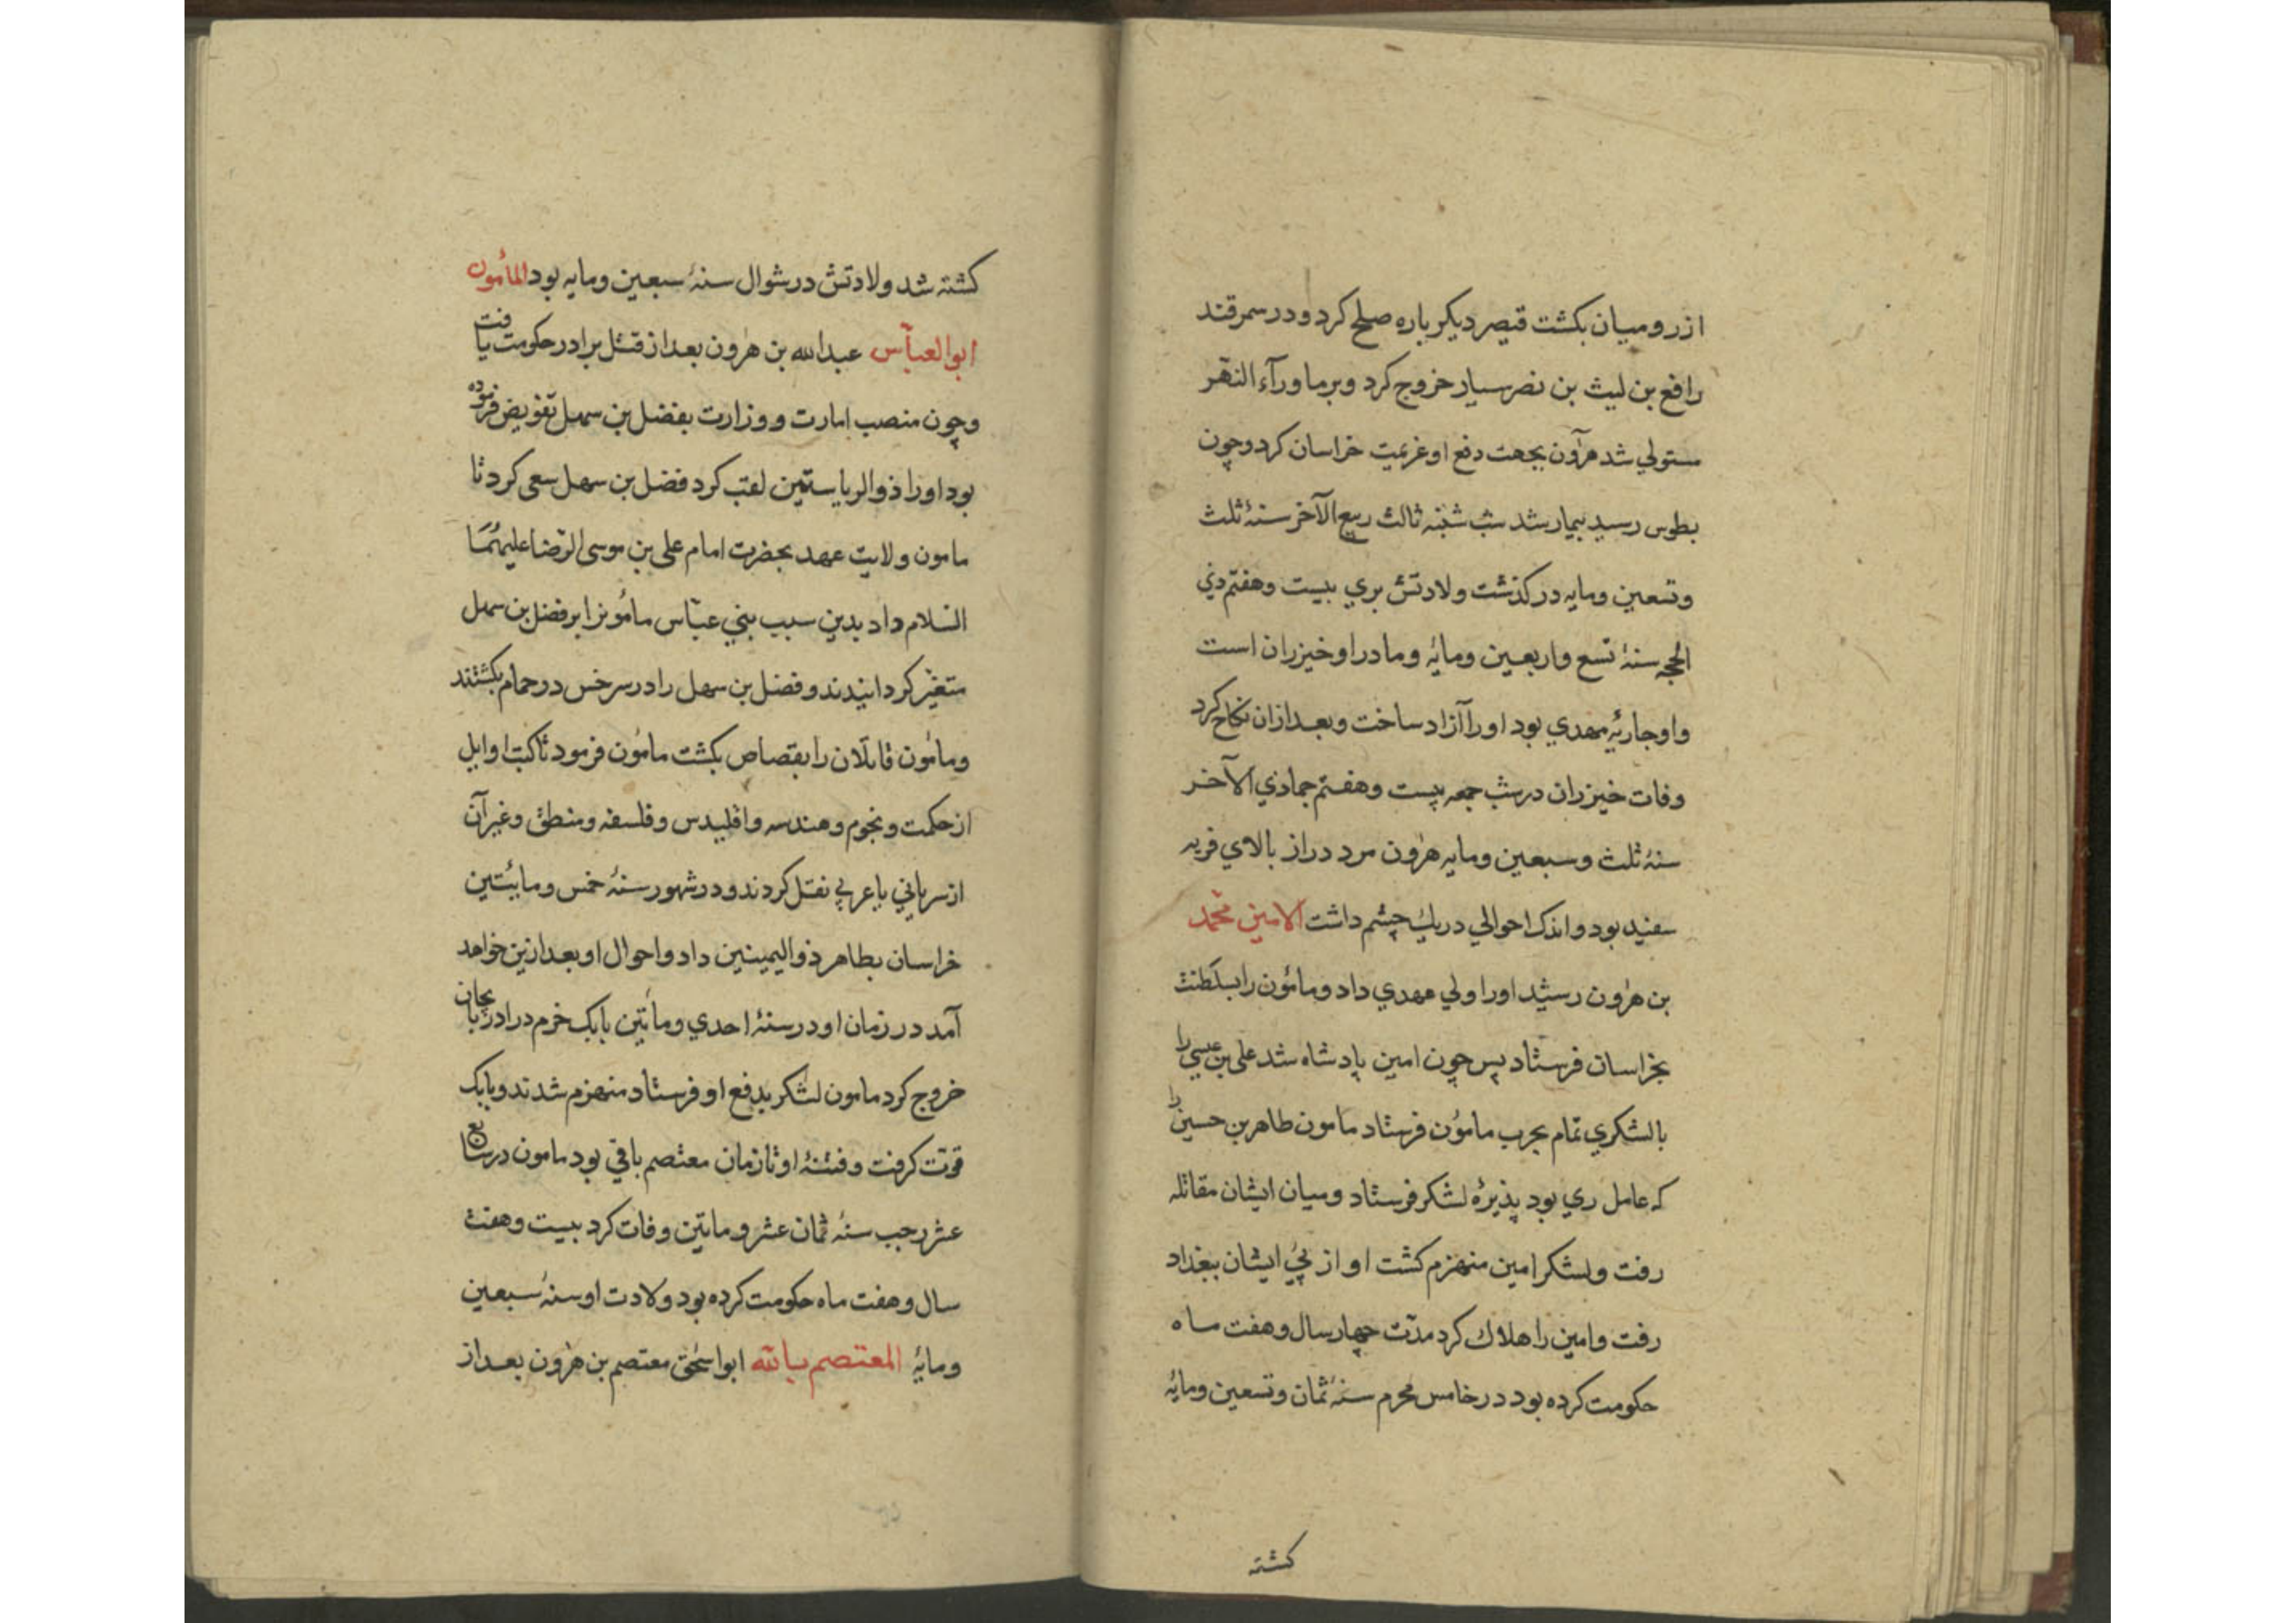 از رومیان بکشت قیصر دیکر باره صلح کرد و در سمرقند
رافع بن لیث بن نصر سیار خروج کرد وبر ما ورآء النهر
مستولی شد هرون بجهت دفع او عزیمت خراسان کرد وچون
بطوس رسید بیمار شد شب شنبه ثالث ربیع الآخر سنۀ ثلث
وتسعین ومایه در کذشت ولادتش بری بیست وهفتم ذی
الحجه سنۀ تسع واربعین ومایۀ ومادر او خیزران است
واو جاریۀ مهدي بود او را آزاد ساخت وبعد ازان نکاح کرد
وفات خیزران در شب جمعه بیست وهفتم جمادي الآخر
سنۀ ثلث وسبعین ومایه هرون مرد دراز بالاي فربه
سفید بود واندک احوالی در یك چشم داشت الامین محمد
بن هرون رشید او را ولي عهدي داد ومامون را بسلطنت
بخراسان فرستاد پس چون امین پادشاه شد علی بن عیسی را
بالشکری تمام بحرب مامون فرستاد مامون طاهر بن حسین را
که عامل ري بود پذیرۀ لشکر فرستاد ومیان ایشان مقاتله
رفت ولشکر امین منهزم کشت او از پی ایشان ببغداد
رفت وامین را هلاك کرد مدت چهار سال وهفت ماه
حکومت کرده بود در خامس محرم سنۀ ثمان وتسعین ومایۀ
کشته
کشته شد ولادتش در شوال سنۀ سبعین ومایه بود المأمون
ابو العباس عبدالله بن هرون بعد از قتل برادر حکومت یافت
وچون منصب امارت ووزارت بفضل بن سهل تفویض فرموده
بود او را ذو الریاستین لقب کرد فضل بن سهل سعی کرد تا
مامون ولایت عهد بحضرت امام علی بن موسی الرضا علیهما
السلام داد بدین سبب بني عباس مامونرا بر فضل بن سهل
متغیر کردانیدند وفضل بن سهل را در سرخس در حمام بکشتند
ومامون قاتلان را بقصاص بکشت مامون فرمود تا کتب اوایل
از حکمت ونجوم وهندسه واقلیدس وفلسفه ومنطق وغیر آن
از سریانی با عربی نقل کردند ودر شهور سنۀ خمس ومایتین
خراسان بطاهر ذو الیمینین داد واحوال او بعد ازین خواهد
آمد در زمان او در سنۀ احدي ومأتین بابک خرم در ادربایجان
خروج کرد مامون لشکر بدفع او فرستاد منهزم شدند وبابک
قوت کرفت وفتنۀ او تا زمان معتصم باقی بود مامون در سابع
عشر رجب سنۀ ثمان عشر ومایتین وفات کرد بیست وهفت
سال وهفت ماه حکومت کرده بود ولادت او سنۀ سبعین
ومایۀ المعتصم بالله ابو اسحق معتصم بن هرون بعد از